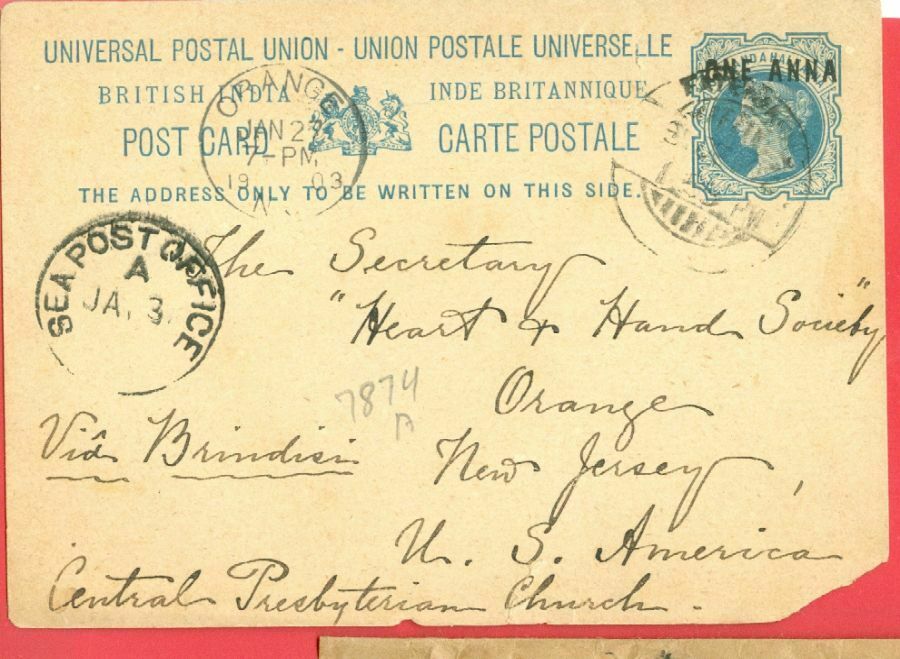 UNIVERSAL POSTAL UNION - UNION POSTALE UNIVERSELLE
BRITISH INDIA INDE BRITANNIQUE
POST CARD CARTE POSTALE
THE ADDRESS ONLY TO BE WRITTEN ON THIS SIDE.
ONE ANNA
ORANGE
JAN 27
7-PM
19 03
SEA POST OFFICE
A
JA. 3
The Secretary
"Heart & Hand Society"
Orange
7874
Viâ Brindisi
New Jersey,
U. S. America
Central Presbyterian Church.